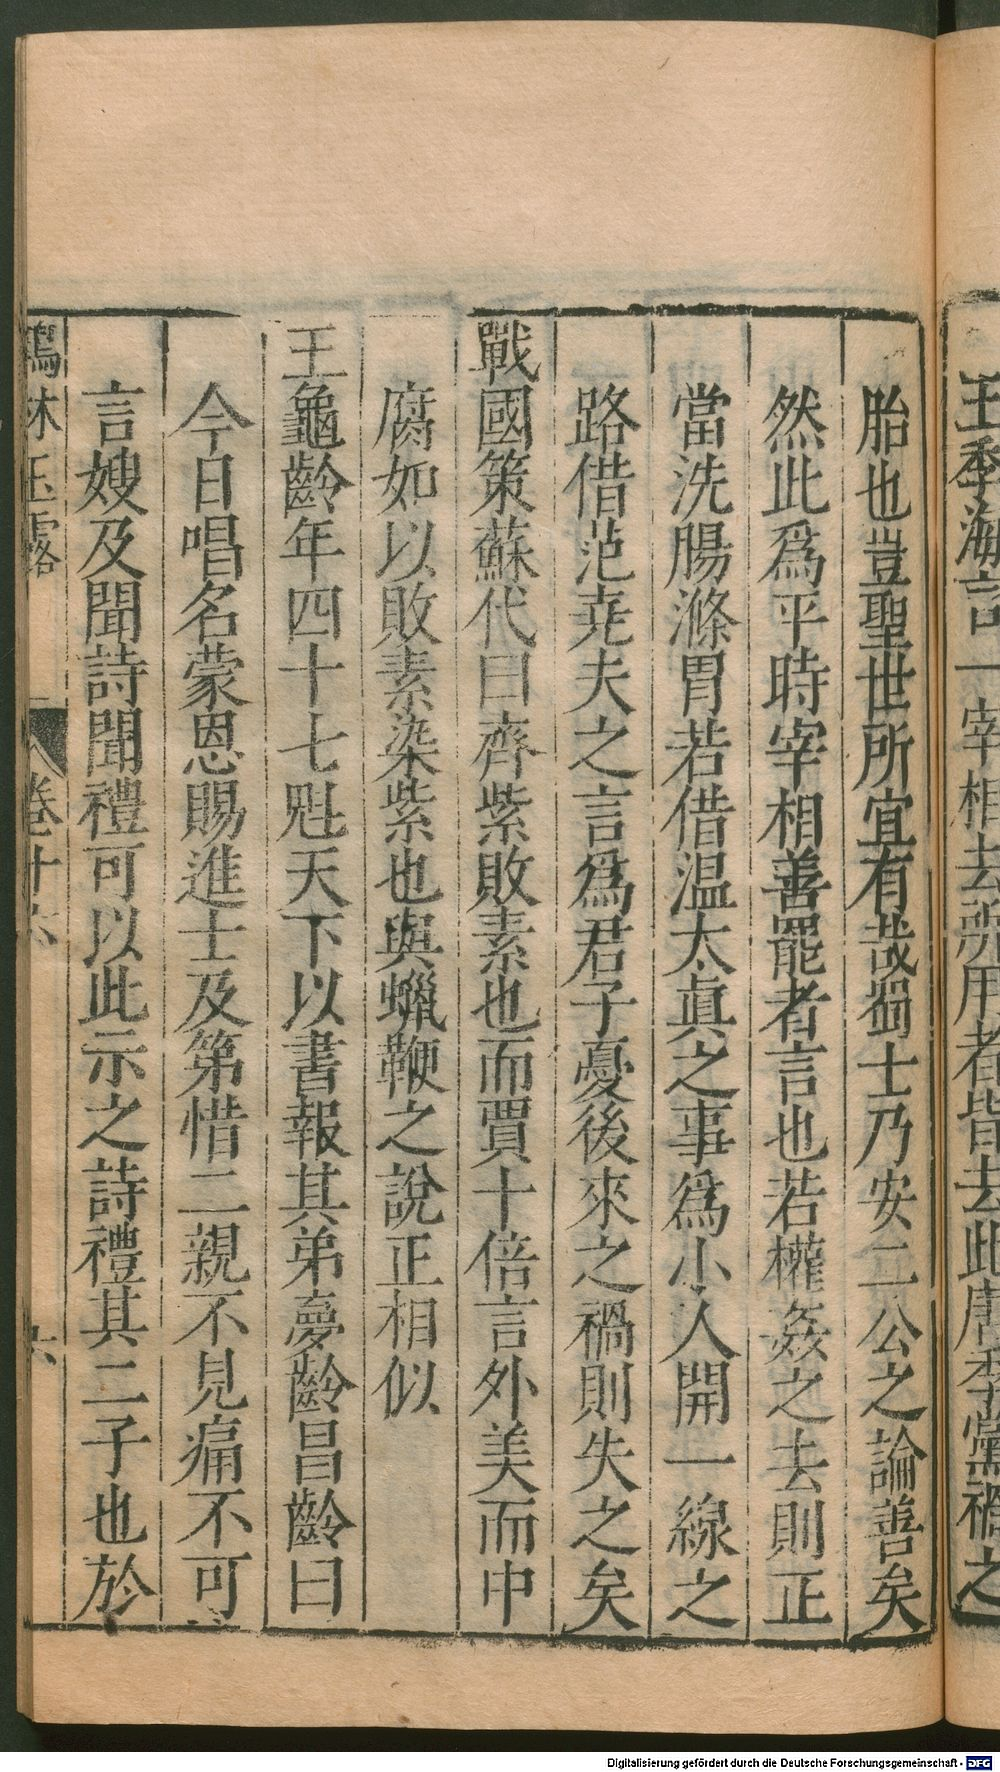 王季海言一宰相去所用者皆去此唐季黨禍之
胎也豈聖世所宜有哉蜀士乃安二公之論善矣
然此爲平時宰相善罷者言也若權姦之去則正
當洗腸滌胃若借温太真之事爲小人開一線之
路借范堯夫之言爲君子憂後來之禍則失之矣
戰國策蘇代曰齊紫敗素也而賈十倍言外美而中
腐如以敗素染紫也與蠟鞭之說正相似
王龜齡年四十七魁天下以書報其弟夢齡昌齡曰
今日唱名蒙恩賜進士及第惜二親不見痛不可
言嫂及聞詩聞禮可以此示之詩禮其二子也於
鶴林玉露 卷十六 六
Digitalisierung gefördert durch die Deutsche Forschungsgemeinschaft - DFG